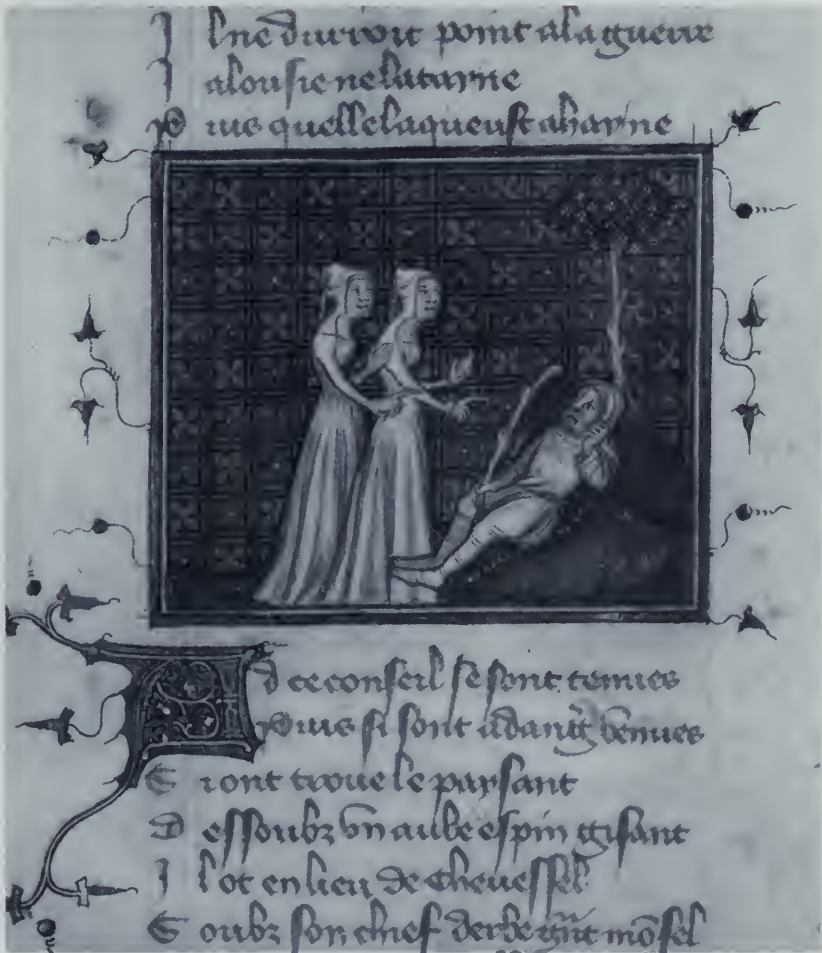 Il ne durroit point a la guerre
Jalousie ne latayne
Puis quelle laqueust a hayne
Ad ce conseil se sont tenues
Puis si sont a dang̃ venues
Si ont troue le paysant
Dessoubz vn aube espin gisant
Il ot en lieu de cheuessel
Soubz son chief derbe gñt mõsel